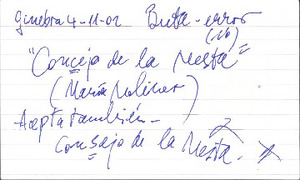 Ginebra 4-11-02 Buta-error
(No)
"Conceja de la Mesta"
(María Moliner)
Acepta también -
Consejo de la Mesta.